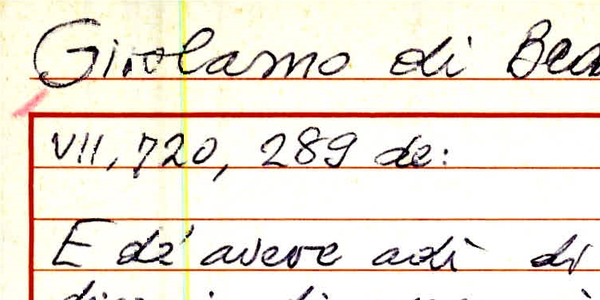 Girolamo di
VII, 720, 289 de:
E dé avere adì di